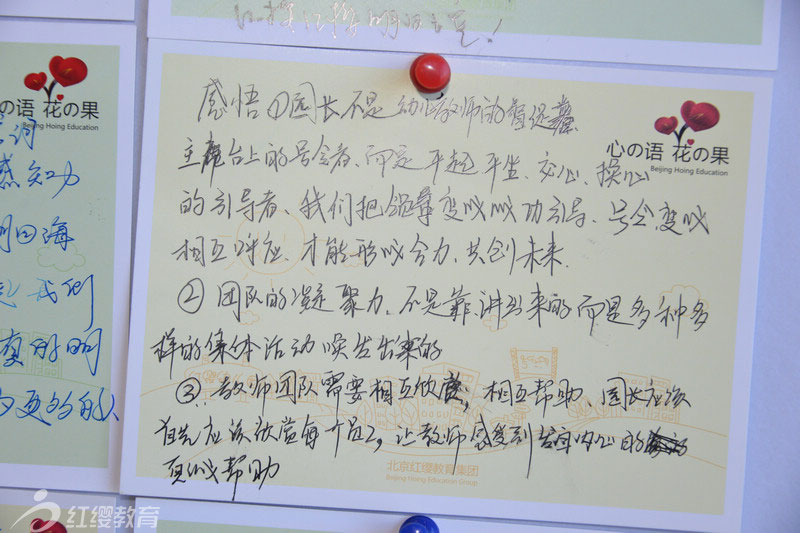 红缨 红缨 明日之星!
心の语 花の果
Beijing Hoing Education
感知力
四海
我们
有明
心の语 花の果
Beijing Hoing Education
感悟①园长不是幼儿教师
主席台上的号令者、而是平起平坐、交心、操心
的引导者、我们把领导变成成功引导、号令变成
相互呼应、才能形成合力、共创未来.
②团队的凝聚力、不是靠讲出来的而是多种多
样的集体活动唤发出来的
③、教师团队需要相互欣赏;相互帮助、园长应该
首先应该欣赏每个员工,让教师感受到发自内心的
真诚帮助
北京红缨教育集团
Beijing Hoing Education Group
红缨教育